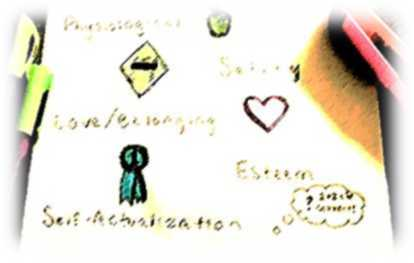 Physiological
Safety
Love/Belonging
Esteem
Self-Actualization